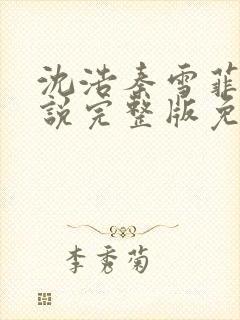 沈浩秦雪菲
说完整版免
李秀菊